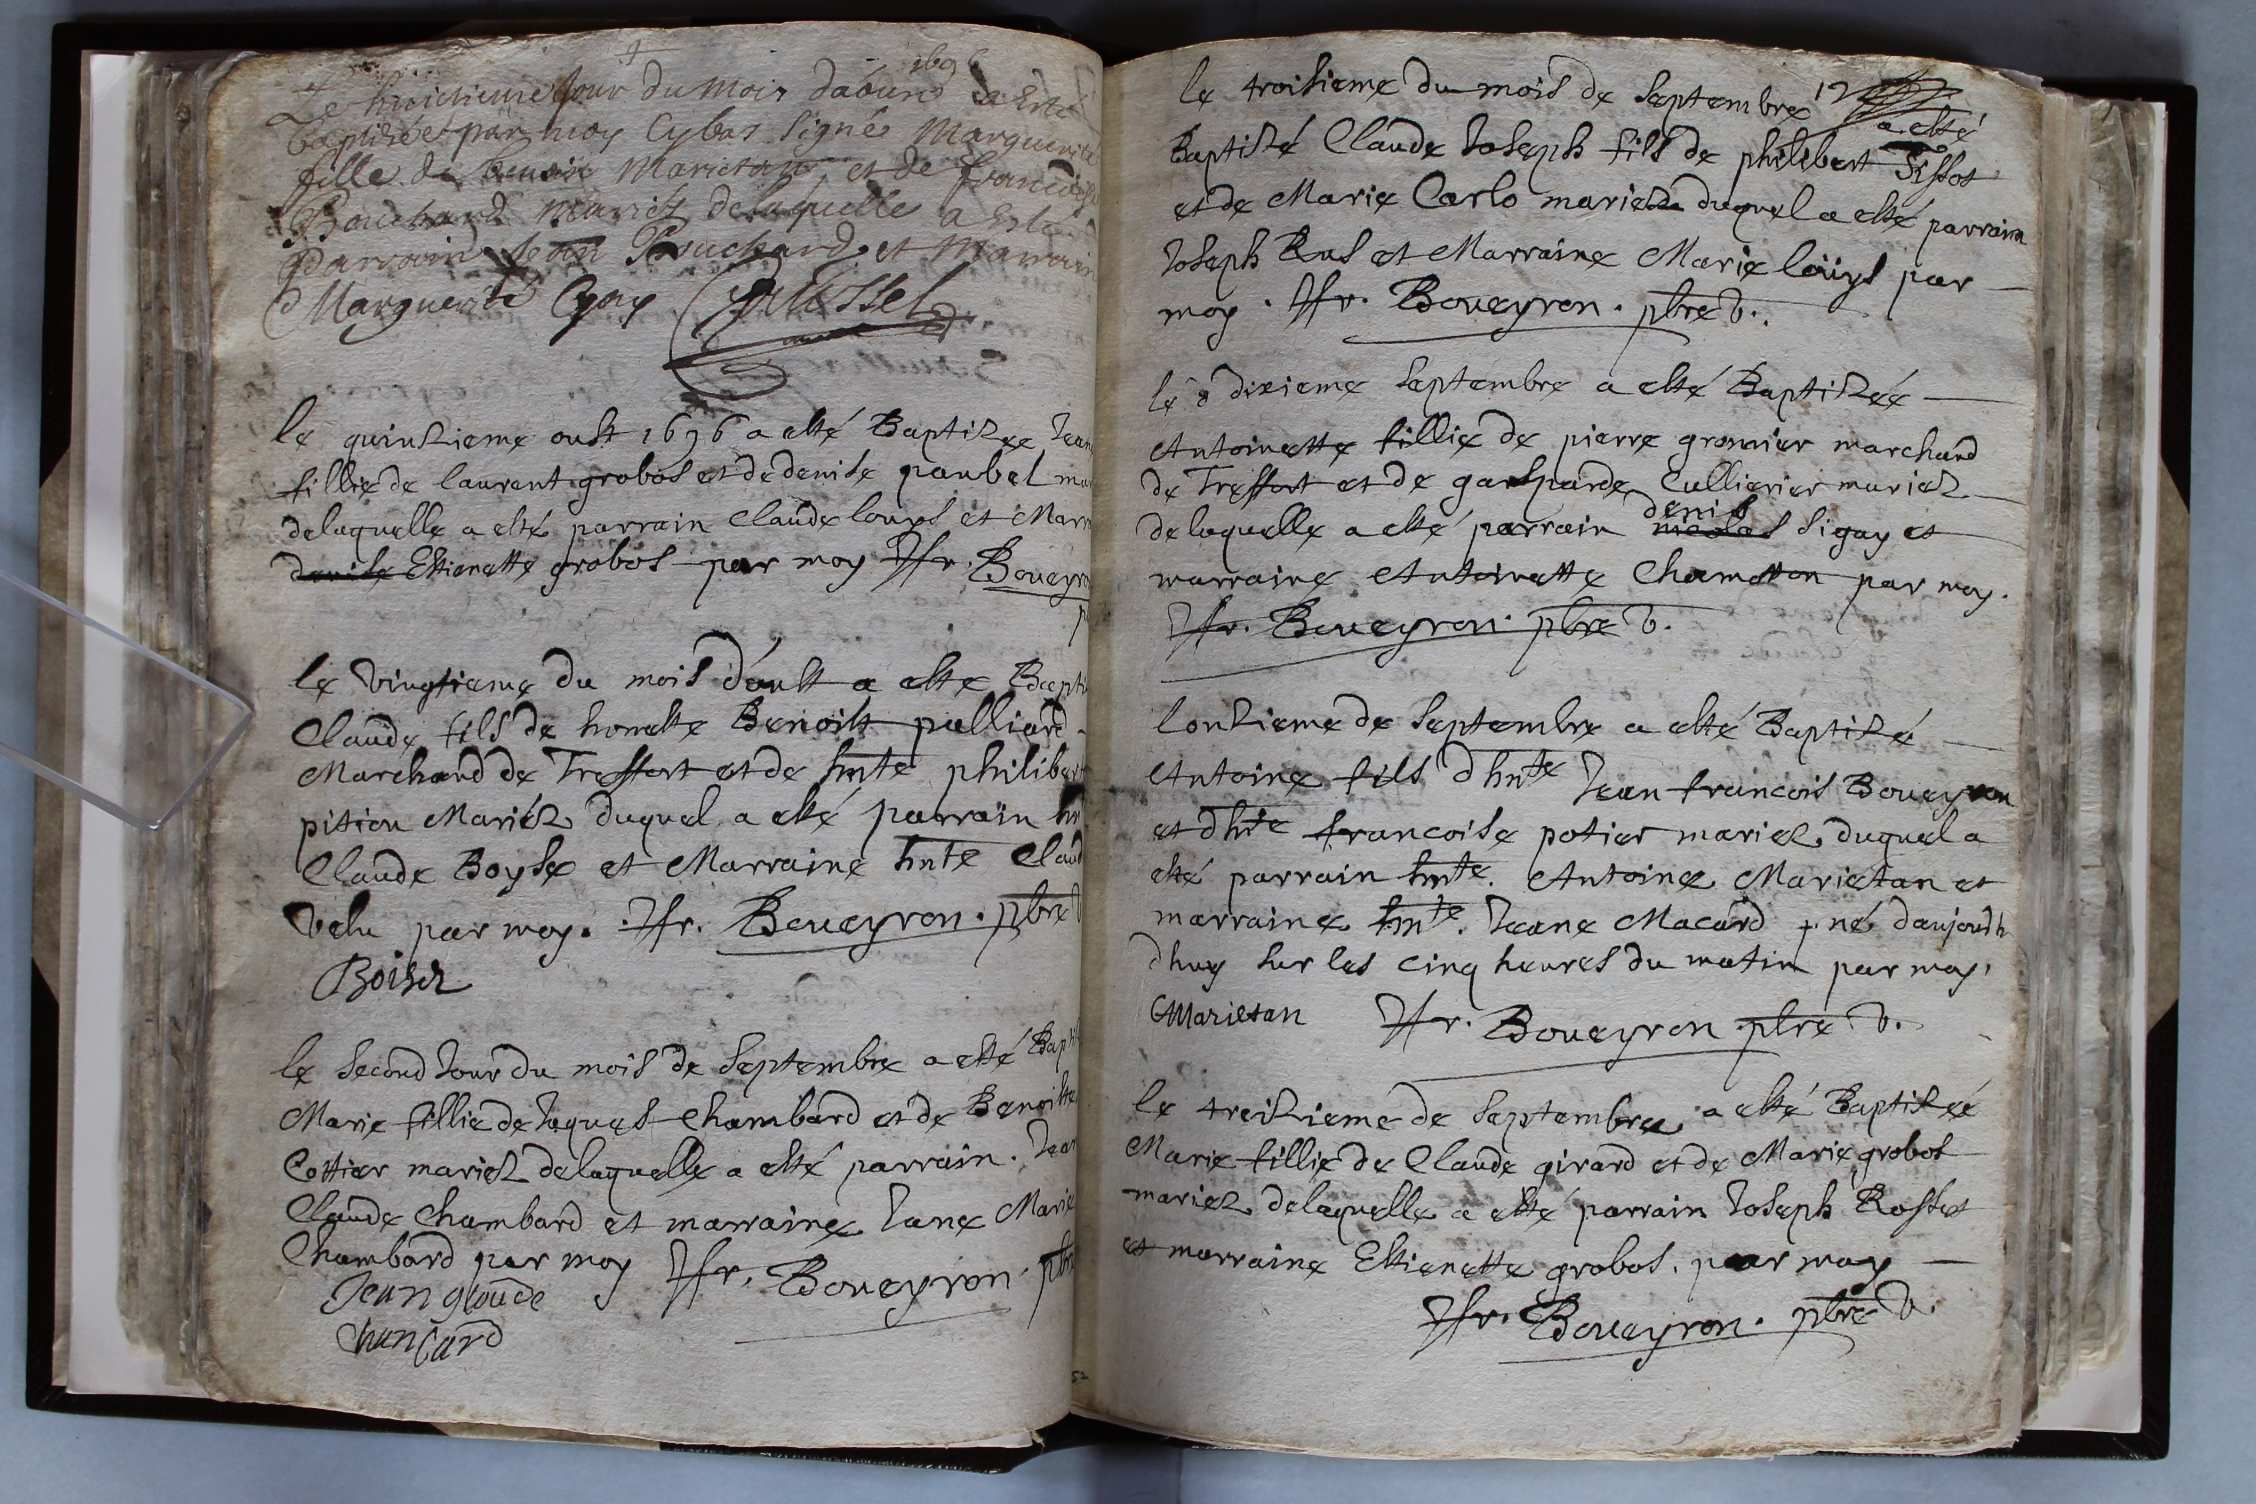 1696
Le huictieme Jour du mois daoust a Esté
baptizée par moy Cybas signé Marguerite
fille de Marietan et de francoise
Bouchard mariéz delaquelle a Esté
parrain Jean Bouchard et Marraine
Marguerite Cyay Jussel
le quinzieme oust 1696 a esté Baptizee Jean
fillie de laurent grobos et de denise paubel mar
delaquelle a esté parrain Claude louys et Marr
denise Estienette grobos par moy Jfr. Boueyro
p
le vingtieme du mois doust a este Bapti
Claude fils de honeste Benoist palliard
Marchand de Treffort et de hnte philiber
pition Mariéz duquel a esté parrain hn
Claude Boyse et Marraine hnte Claud
velu par moy. Jfr. Boueyron. pbre v
Boisez
le second Jour du mois de Septembre a esté Bapti
Marie fillie de Jaques Chambard et de Benoiste
Cottier mariez delaquelle a esté parrain. Jean
Claude Chambard et marraine Jane Marie
Chambard par moy Jfr. Boueyron. pbre
Jean gloude
chanbard
52
le troisieme du mois de Septembre
a esté
Baptizé Claude Joseph fils de philibert Tissot
et de Marie Carlo mariez duquel a esté parrain
Joseph Rus et Marraine Marie loüys par
moy. Jfr. Boueyron. pbre v.
le dixieme Septembre a esté Baptizéé
Antoinette fillie de pierre gromier marchand
de Treffort et de gasparde Cullierier mariez
denis
delaquelle a esté parrain nicolas sigay et
marraine Antoinette Chamotton par moy.
Jfr. Boueyron. pbre v.
lonzieme de Septembre a esté Baptizé
Antoine fils dhnte Jean francois Boueyron
et dhnte francoise potier mariez duquel a
esté parrain hnte. Antoine Marietan et
marraine hnte. Jeane Macard né daujourdh
dhuy sur les cinq heures du matin par moy,
Marietan Jfr. Boueyron pbre v.
le treizieme de Septembre a esté Baptizéé
Marie fillie de Claude girard et de Marie grobos
mariez delaquelle a esté parrain Joseph Rosset
et marraine Estienette grobos. par moy
Jfr. Boueyron. pbre v.